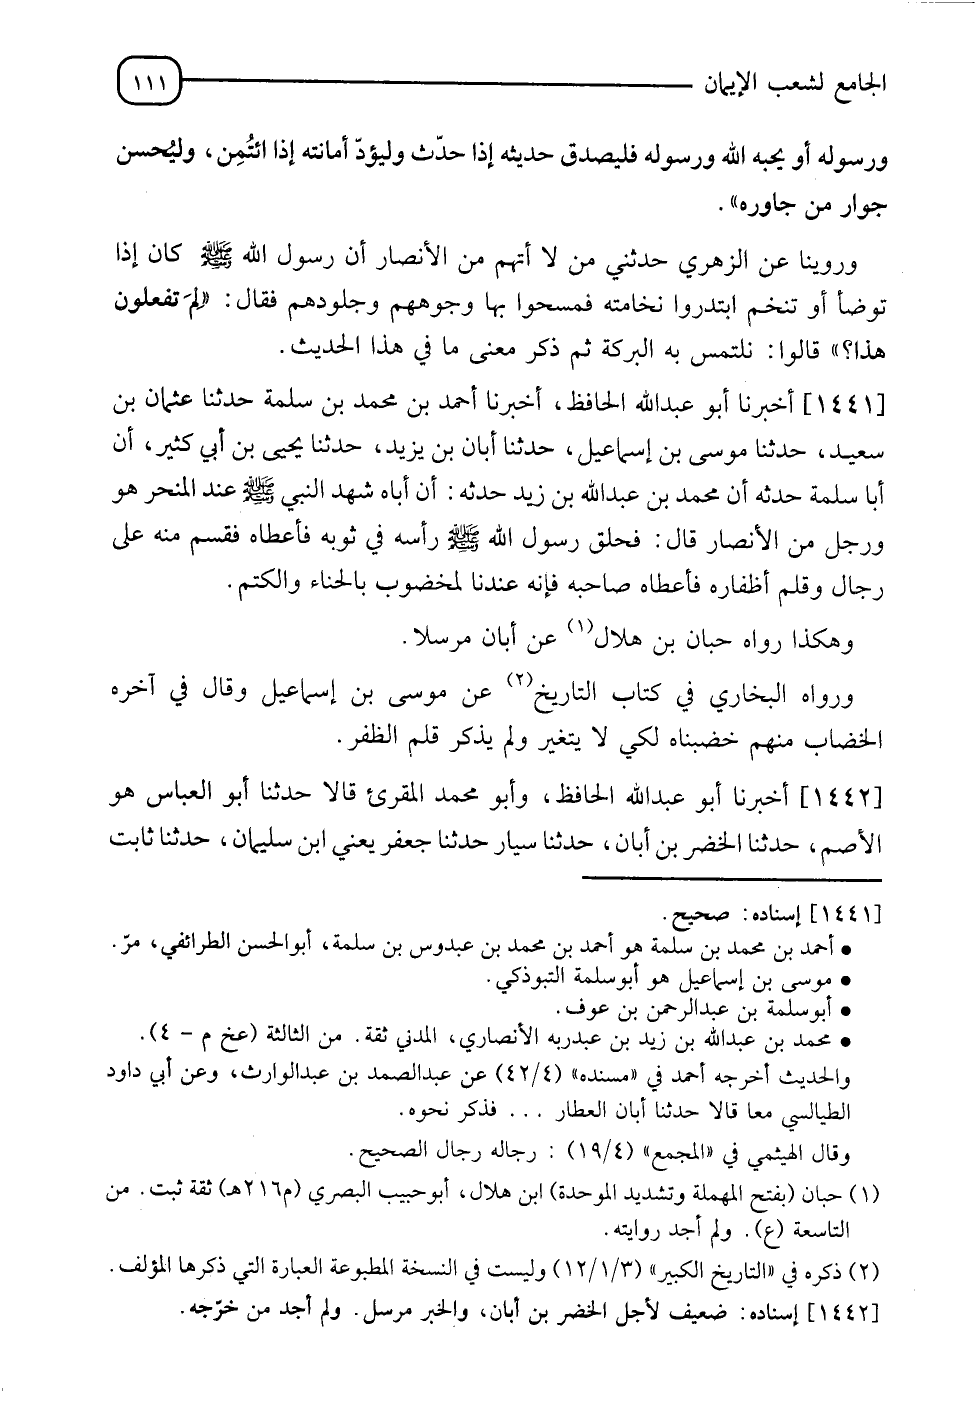 الجامع لشعب الإيمان ١١١
ورسوله أو يحبه الله ورسوله فليصدق حديثه إذا حدّث وليؤدّ أمانته إذا ائتُمِن، وليُحسن
جوار من جاوره».
وروينا عن الزهري حدثني من لا أتهم من الأنصار أن رسول الله ﷺ كان إذا
توضأ أو تنخم ابتدروا نخامته فمسحوا بها وجوههم وجلودهم فقال: «لِمَ تفعلون
هذا؟» قالوا: نلتمس به البركة ثم ذكر معنى ما في هذا الحديث.
[١٤٤١] أخبرنا أبو عبدالله الحافظ، أخبرنا أحمد بن محمد بن سلمة حدثنا عثمان بن
سعيد، حدثنا موسى بن إسماعيل، حدثنا أبان بن يزيد، حدثنا يحيى بن أبي كثير، أن
أبا سلمة حدثه أن محمد بن عبدالله بن زيد حدثه: أن أباه شهد النبي ﷺ عند المنحر هو
ورجل من الأنصار قال: فحلق رسول الله ﷺ رأسه في ثوبه فأعطاه فقسم منه على
رجال وقلم أظفاره فأعطاه صاحبه فإنه عندنا لمخضوب بالحناء والكتم.
وهكذا رواه حبان بن هلال(١) عن أبان مرسلا.
ورواه البخاري في كتاب التاريخ(٢) عن موسى بن إسماعيل وقال في آخره
الخضاب منهم خضبناه لكي لا يتغير ولم يذكر قلم الظفر.
[١٤٤٢] أخبرنا أبو عبدالله الحافظ، وأبو محمد المقرئ قالا حدثنا أبو العباس هو
الأصم، حدثنا الخضر بن أبان، حدثنا سيار حدثنا جعفر يعني ابن سليمان، حدثنا ثابت
[١٤٤١] إسناده: صحيح.
● أحمد بن محمد بن سلمة هو أحمد بن محمد بن عبدوس بن سلمة، أبوالحسن الطرائفي، مرّ.
● موسى بن إسماعيل هو أبوسلمة التبوذكي.
● أبوسلمة بن عبدالرحمن بن عوف.
● محمد بن عبدالله بن زيد بن عبدربه الأنصاري، المدني ثقة. من الثالثة (عخ م - ٤).
والحديث أخرجه أحمد في «مسنده» (٤٢/٤) عن عبدالصمد بن عبدالوارث، وعن أبي داود
الطيالسي معا قالا حدثنا أبان العطار ... فذكر نحوه.
وقال الهيثمي في «المجمع» (١٩/٤) : رجاله رجال الصحيح.
(١) حبان (بفتح المهملة وتشديد الموحدة) ابن هلال، أبوحبيب البصري (م٢١٦هـ) ثقة ثبت. من
التاسعة (ع). ولم أجد روايته.
(٢) ذكره في «التاريخ الكبير» (١٢/١/٣) وليست في النسخة المطبوعة العبارة التي ذكرها المؤلف.
[١٤٤٢] إسناده: ضعيف لأجل الخضر بن أبان، والخبر مرسل. ولم أجد من خرّجه.